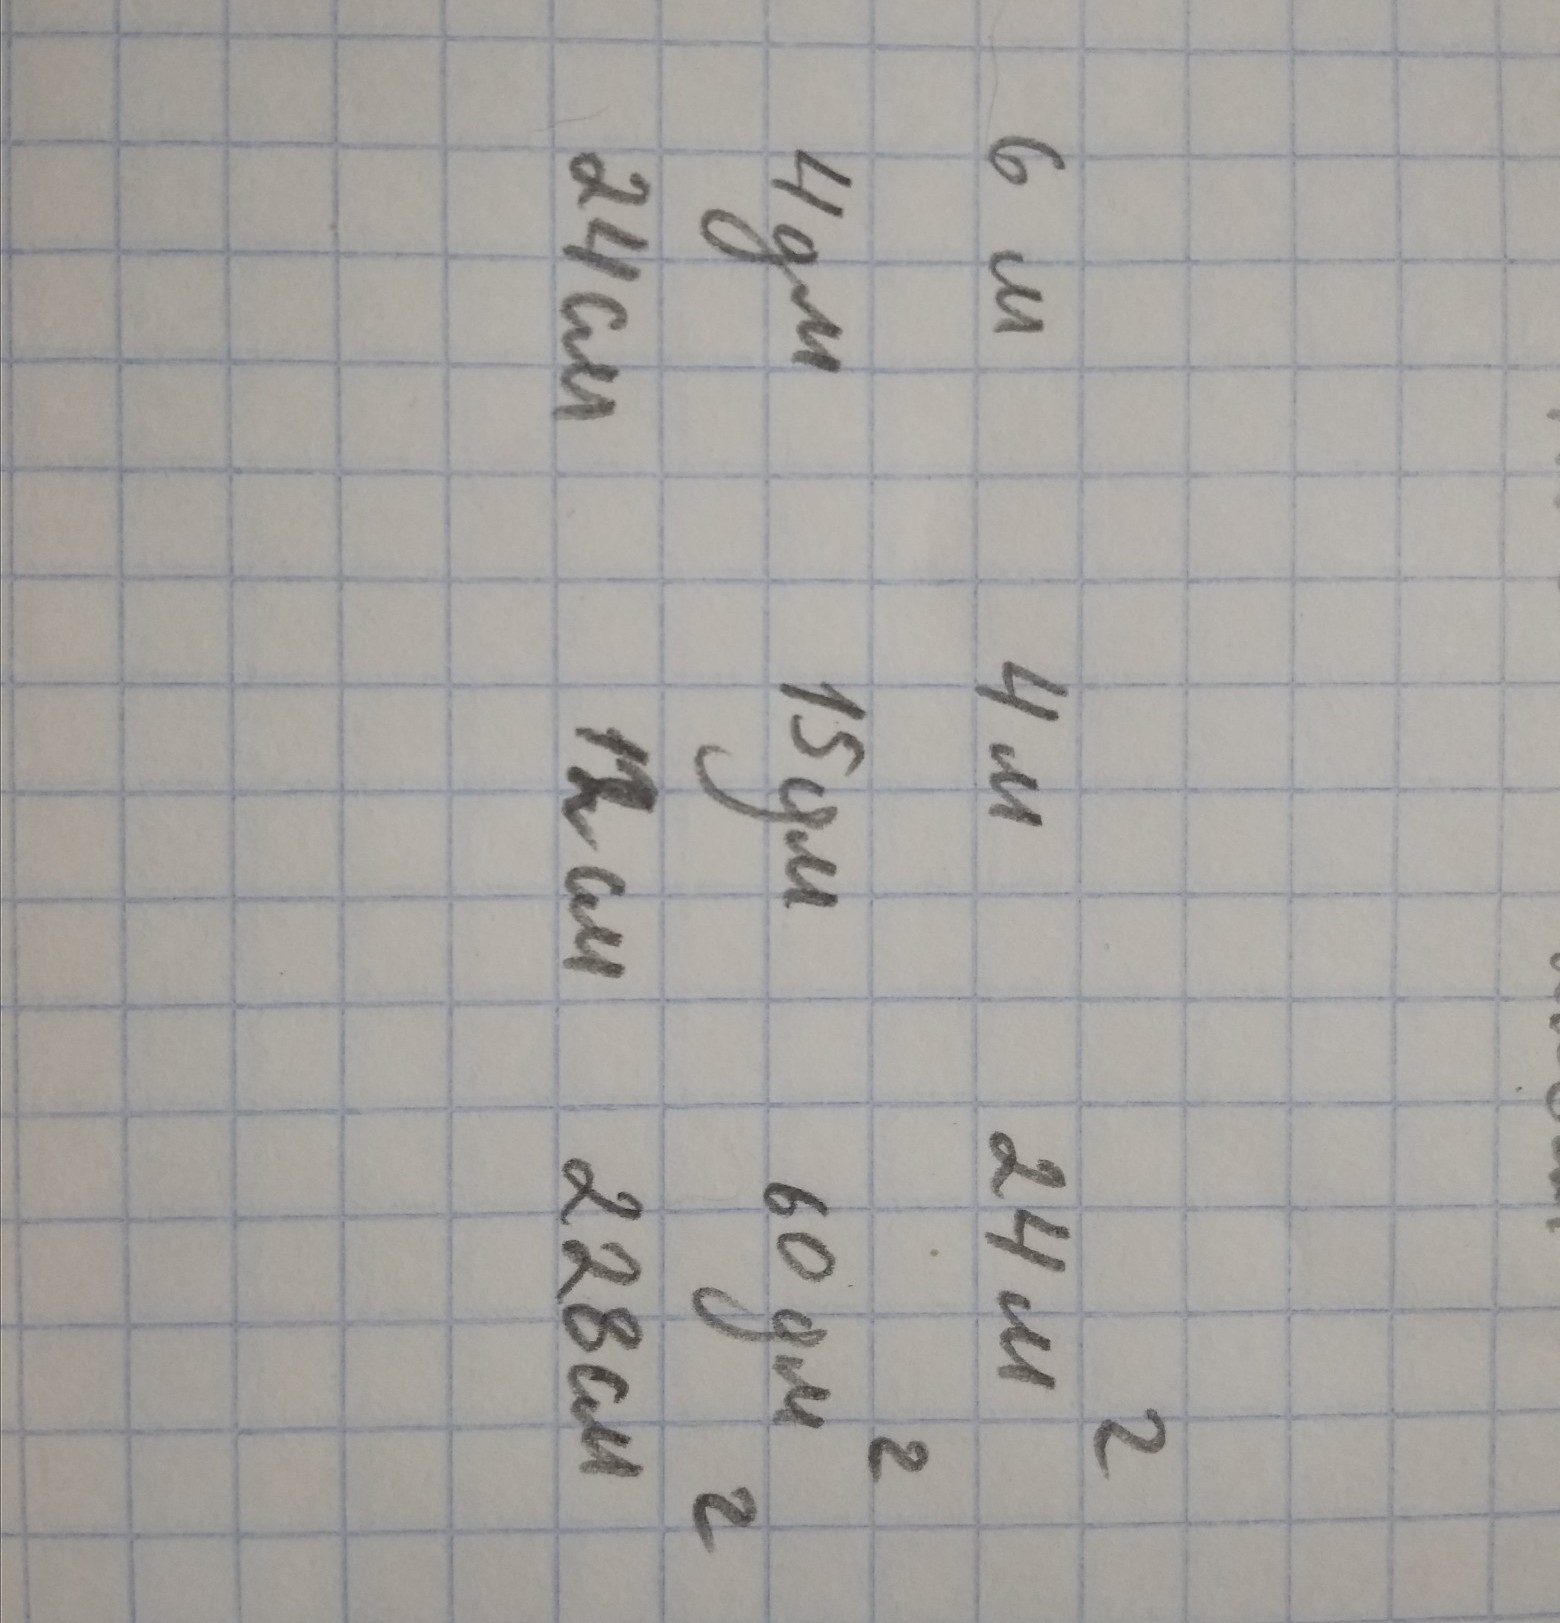 6 м 4 м 24 м²
4 дм 15 дм 60 дм²
24 см 12 см 228 см²